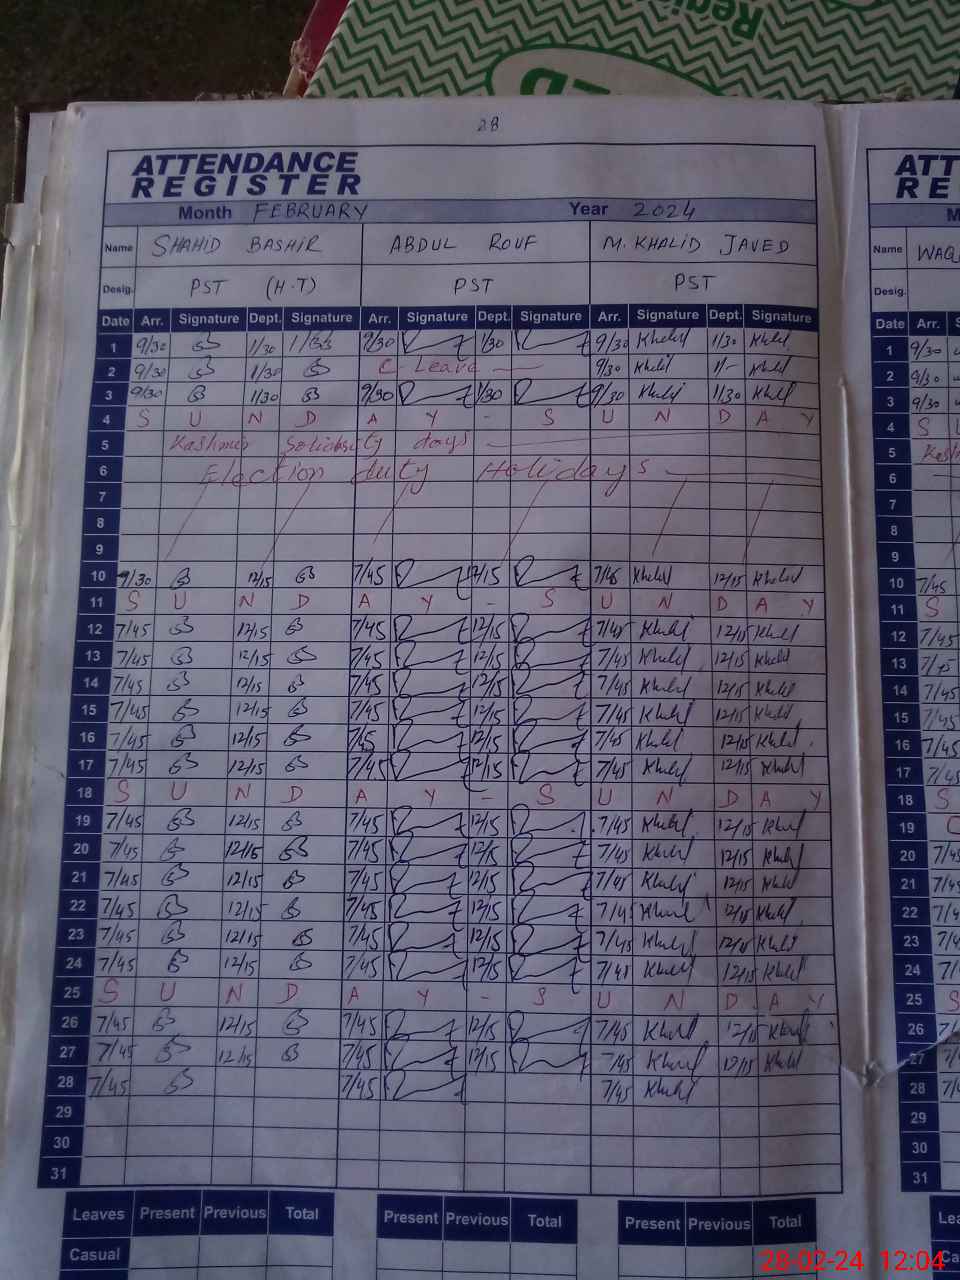 Register
28
ATTENDANCE
REGISTER
ATT
RE
Month FEBRUARY Year 2024
Name SHAHID BASHIR ABDUL ROUF M. KHALID JAVED
Name
Desig. PST (H.T) PST PST
Desig.
Date Arr. Signature Dept. Signature Arr. Signature Dept. Signature Arr. Signature Dept. Signature
Date Arr.
1 9/30 1/30 9/30 1/30 9/30 Khalid 1/30 Khalid 1 9/30
2 9/30 1/30 C-Leave 9/30 Khalid 1/- Khalid 2 9/30
3 9/30 1/30 9/30 1/30 9/30 Khalid 11/30 Khalid 3 9/30
4 S U N D A Y - S U N D A Y 4 S
5 Kashmir Solidarity days 5
6 Election duty Holidays 6
7 7
8 8
9 9
10 9/30 12/15 7/45 12/15 7/45 Khalid 12/15 Khalid 10 7/45
11 S U N D A Y - S U N D A Y 11 S
12 7/45 12/15 7/45 12/15 7/45 Khalid 12/15 Khalid 12 7/45
13 7/45 12/15 7/45 12/15 7/45 Khalid 12/15 Khalid 13 7/45
14 7/45 12/15 7/45 12/15 7/45 Khalid 12/15 Khalid 14 7/45
15 7/45 12/15 7/45 12/15 7/45 Khalid 12/15 Khalid 15 7/45
16 7/45 12/15 7/45 12/15 7/45 Khalid 12/15 Khalid 16 7/45
17 7/45 12/15 7/45 12/15 7/45 Khalid 12/15 Khalid 17 7/45
18 S U N D A Y - S U N D A Y 18 S
19 7/45 12/15 7/45 12/15 7/45 Khalid 12/15 Khalid 19
20 7/45 12/15 7/45 12/15 7/45 Khalid 12/15 Khalid 20
21 7/45 12/15 7/45 12/15 7/45 Khalid 12/15 Khalid 21
22 7/45 12/15 7/45 12/15 7/45 Khalid 12/15 Khalid 22
23 7/45 12/15 7/45 12/15 7/45 Khalid 12/15 Khalid 23
24 7/45 12/15 7/45 12/15 7/45 Khalid 12/15 Khalid 24
25 S U N D A Y - S U N D A Y 25 S
26 7/45 12/15 7/45 12/15 7/45 Khalid 12/15 Khalid 26
27 7/45 12/15 7/45 12/15 7/45 Khalid 12/15 Khalid 27
28 7/45 7/45 7/45 Khalid 28
29 29
30 30
31 31
Leaves Present Previous Total Present Previous Total Present Previous Total
Casual
28-02-24 12:04